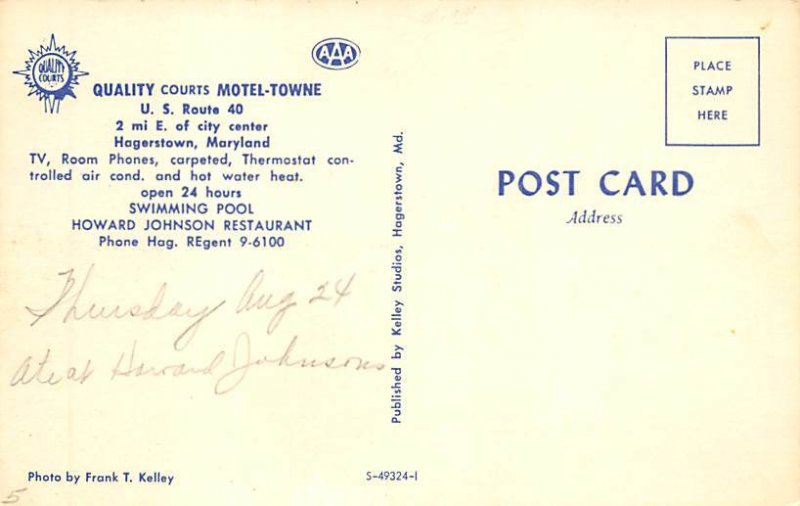 QUALITY COURTS
AAA
QUALITY COURTS MOTEL-TOWNE
U. S. Route 40
2 mi E. of city center
Hagerstown, Maryland
TV, Room Phones, carpeted, Thermostat con-
trolled air cond. and hot water heat.
open 24 hours
SWIMMING POOL
HOWARD JOHNSON RESTAURANT
Phone Hag. REgent 9-6100
Thursday Aug 24
Ate at Howard Johnsons
Photo by Frank T. Kelley
5
Published by Kelley Studios, Hagerstown, Md.
S-49324-1
PLACE
STAMP
HERE
POST CARD
Address